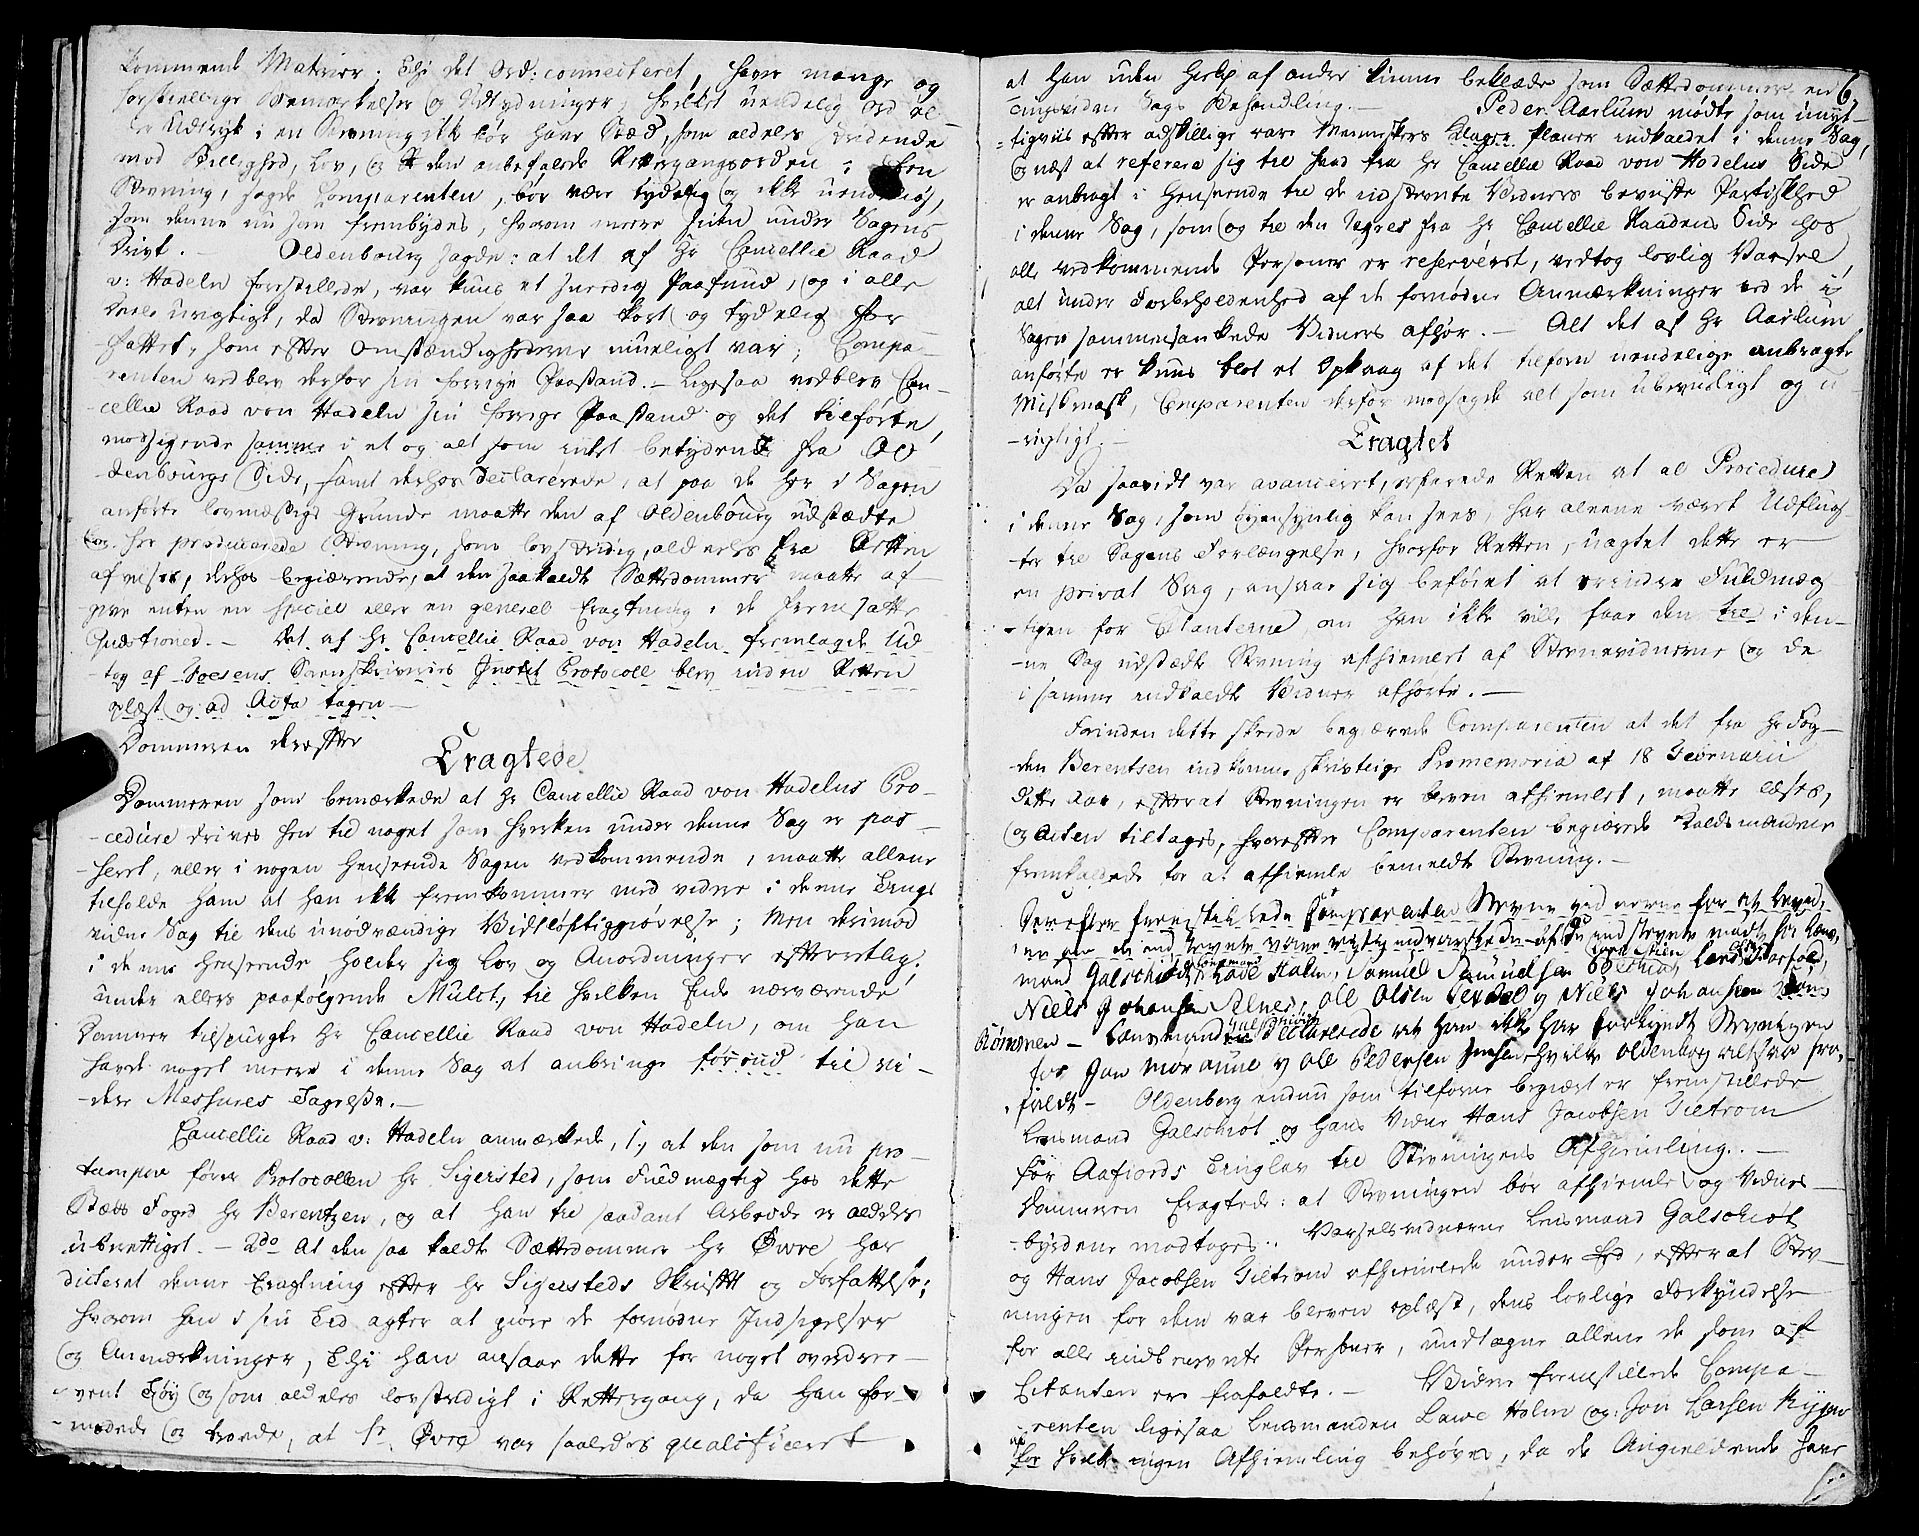 kommende Materier. Thi det Ord: connecteret, haver mange og
forskiellige Bemærkelser og Udtydninger, hvilket uendelig Ord el-
ler Udtryk i en Stevning ikke bør have Stæd, som aldeles stridende
mod Billighed, Lov, og den anbefalede Rettergangsorden; Een
Stevning, sagde Comparenten, bør være tydelig og ikke uendelig,
som denne nu her frembydes, hvorom meere siden under Sagens
Drivt. — Oldenbourg sagde: at det af Hr Cancellie Raad
v: Hadeln forestillede, var kuns et snerdig Paafund, og i alle
Deele urigtigt, da Stevningen var saa kort og tydelig for-
fattet, som efter Omstændighederne mueligt var; Compa-
renten vedblev derfor sin forrige Paastand. — Ligesaa vedblev Can-
cellie Raad von Hadeln sin forrige Paastand og det tilførte,
modsigende samme i et og alt som intet betydende fra Ol-
denbourgs Side, samt derhos declarerede, at paa de her i Sagen
anførte lovmæssige Grunde maatte den af Oldenbourg udstædte
og her producerede Stevning, som lovstridig, aldeles fra Retten
afvises, derhos begiærende, at den saakaldte Sættedommer maatte af-
give enten en speciel eller en generel Eragtning i de fremsatte
Qustioned. — Det af Hr Cancellie Raad von Hadeln fremlagde Ud-
tog af Soesens Sorenskriveries Justits Protocoll blev inden Retten
oplæst og ad Acta tagen —
Dommeren derefter
Eragtede
Dommeren som bemærkede at Hr Cancellie Raad von Hadelns Pro-
cedure drives hen til noget som hverken under denne Sag er pas-
seret, eller i nogen henseende Sagen vedkommende, maatte allene
tilholde ham at han ikke fremkommer med videre i denne Tings
vidne Sag til dens unødvændige Vidtløftiggiørelse; men derimod
i denne henseende holder sig Lov og Anordninger efterrettlig,
under ellers paafølgende Mulct, til hvilken Ende nærværende
Dommer tilspurgte Hr Cancellie Raad von Hadeln, om han
havde noget meere i denne Sag at anbringe forend til vi-
dere Messures Tagelse. —
Cancellie Raad v: Hadeln anmærkede, 1, at den som nu pro
tempore fører Protocollen Hr Sigersted, som Fuldmægtig hos dette
Stæds Foged Hr Berentzen, og at han til saadant Arbeide er aldeles
uberettiget. — 2do At den saa kaldte Sættedommer Hr Øvre har
dicteret denne Eragtning efter Hr Sigersteds Skrifft og Forfattelse;
hvorom han i sin Tid agter at giøre de fornødne Indsigelser
og Anmærkninger, Thi han ansaar dette for noget overdre-
vent Tøy og som aldeles lovstridigt i Rettergang, da han for-
modede og troede, at Hr Øvre var saaledes qualificeret
at han uden Hielp af andre kunne beklæde som Sættedommer en 6
Tingsvidne Sags Behandling. — Peder Aarlum mødte som unyt-
tigviis efter adskillige rare Menneskers Klager planer indkaldet i denne Sag,
og næst at referere sig til hvad fra Hr Cancellie Raad von Hadelns Side
er anbragt i Henseende til de indstevnte Vidners beviiste Partiskhed
i denne Sag, som og til den Regres fra Hr Cancellie Raadens Side hos
alle vedkommende Personer er reserveret, vedtog lovlig Varsel,
alt under Forbeholdenhed af de fornødne Anmærkninger ved de i
Sagen sammensankede Vidners afhør. — Alt det af Hr Aarlum
anførte er kuns blot et Opkaag af det tilforn uendelige anbragte
Miskmask, Comparenten derfor modsagde alt som ubeviisligt og u-
rigtigt. —
Eragtet
Da saavidt var avanceret, erfarede Retten at al Procedure
i denne Sag, som øyensynlig kan sees, har alene været Udflug-
ter til Sagens Forlængelse, hvorfor Retten, uagtet dette er
en privat Sag, ansaar sig beføiet at erindre Fuldmæg-
tigen for Citanterne, om han ikke ville faae den til i den-
ne Sag udstædte Stevning afhiemlet af Stevnevidnerne og de
i samme indkaldte Vidner afhørte. —
Forinden dette skeede begiærede Comparenten at det fra Hr Fog-
den Berentsen indkomne skrivtlige Promemoria af 18 Februarii
dette Aar, efterat Stevningen er bleven afhiemlet, maatte læses,
og Acten tiltages, hvorefter Comparenten begiærede Kaldsmændene
fremkaldede for at afhiemle bemeldte Stevning. —
Derefter fremstillede Comparenten Stevne vidnerne for at bevid-
ne om de indstevnte vare rigtig indvarslede — af de indstevnte mødte her Læns-
mand Galschiøt, Lensmand Lave Holm, Samuel Samuelsen Lars Aarfold,
Niels Johansen Selnes, Ole Olsen og Niels Johansen
Rømmen — Lensmand Galschiøt declarerede at han ikke har forkyndt Stevningen
for Jon Morianne og Ole Pedersen Jensen hvilke Oldenborg altsaa fra-
faldt — Oldenberg endnu som tilforne begiært er fremstillede
Lensmand Galschiøt og Hans Vidne Hans Jacobsen Gietrom
for Aafiords Tinglav til Stevningens Afhiemling. —
Dommeren Eragtede: at Stevningen bør afhiemles og Vidnes-
byrdene modtages. Varselsvidnerne Lensmand Galschiøt
og Hans Jacobsen Gietrom afhiemlede under Eed, efter at Stev-
ningen for dem var bleven oplæst, dens lovlige Forkyndelse
for alle indstevnte Personer, undtagne allene de som af
Citanten er frafaldte. — Videre fremstillede Compa-
renten ligesaa Lensmanden Lawe Holm og Jon Larsen Rypen
for hvilke ingen Afhiemling behøves, da de Angieldende have